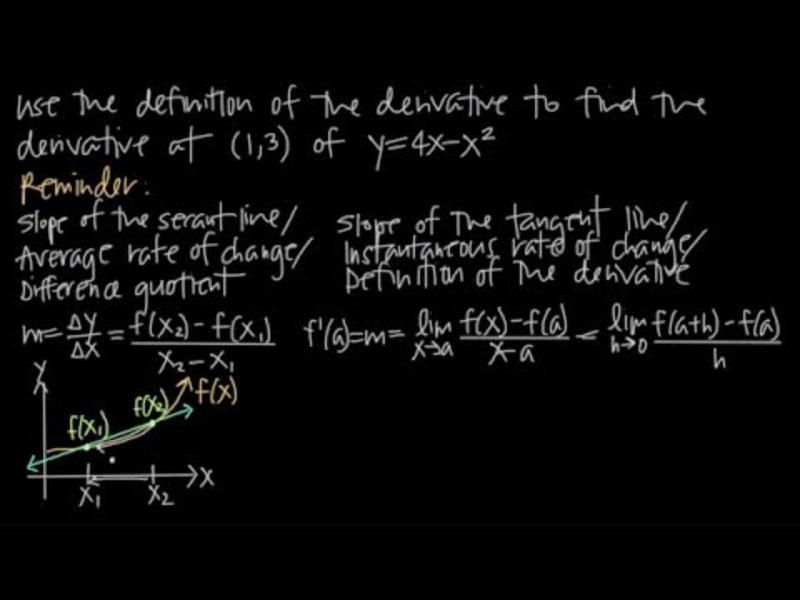 use the definition of the derivative to find the
derivative at (1,3) of y=4x-x²
Reminder:
Slope of the secant line/
Average rate of change/
Difference quotient
m=Δy/Δx=(f(x₂)-f(x₁))/(x₂-x₁)
Slope of the tangent line/
Instantaneous rate of change/
Definition of the derivative
f'(a)=m=lim x→a (f(x)-f(a))/(x-a) = lim h→0 (f(a+h)-f(a))/h
y
f(x₁)
f(x₂)
f(x)
x₁
x₂
x